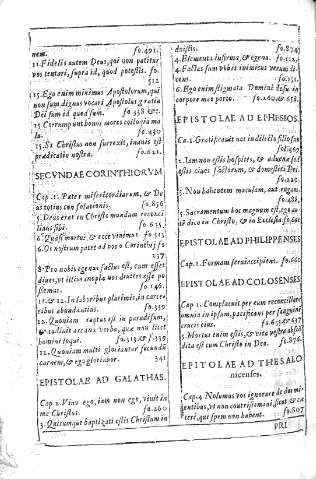 nem. fo.491.
11. Fidelis autem Deus, qui non patitur
vos tentari, supra id, quod potestis. fo.
512
15. Ego enim minimus Apostolorum, qui
non sum dignus vocari Apostolus gratia
Dei sum id quod sum. fo.338 &c.
15. Corrumpunt bonos mores colloquia ma
la. fo.430
15. Si Christus non surrexit, inanis est
prædicatio nostra. fo.621.
SECVNDAE CORINTHIORVM
Cap. 1. Pater misericordiarum, & De
us totius consolationis. fo.836
5. Deus erat in Christo mundum reconci
lians sibi. fo.635
6. Quasi mortui, & ecce vivimus fo.513
6. Os nostrum patet ad vos o Corinthij fo
237
8. Pro nobis egenus factus est, cum esset
dives, ut illius inopia vos divites esse po
fo.146.
11. & 12. In laboribus plurimis, in carce
ribus abundantius. fo.339
12. Quoniam raptus est in paradisum,
& audivit arcana verba, quæ non licet
homini loqui. fo.513. & f.339
Quoniam multi gloriantur secundũ
carnem, & ego gloriabor. 341
EPISTOLAE AD GALATHAS.
Cap. 2. Vivo ego, iam non ego, vivit in
me Christus. fo.260
3. Quicumque baptizati estis Christum in
duistis. fo.874
4. Elementa infirma, & egena.
4. Factus sum vobis inimicus verum di
cens. fo.151.
6. Ego enim stigmata Domini Iesu in
corpore meo porto. fo.260. & 658.
EPISTOLAE AD EPHESIOS.
Cap. 1. Gratificavit nos in dilecto filio suo
2. Iam non estis hospites, & advenæ sed
estis cives sanctorum, & domestici Dei.
fo.220.
5. Non habentem maculam, aut rugam.
fo.488.
5. Sacramentum hoc magnum est, ego au
tẽ dico in Christo, & in Ecclesia
EPISTOLAE AD PHILIPPENSES
Cap. 2. Formam servi accipiens. fo.660
EPISTOLAE AD COLOSENSES
Cap 1. Complacuit per eum reconciliare
omnia in ipsum, pacificans per sanguinẽ
crucis eius. fo.635. & 637
3. Mortui enim estis, & vita vestra abscõ
dita est cum Christo in Deo. fo.876.
EPITOLAE AD THESALO
nicenses.
Cap. 4. Nolumus vos ignorare de dormi
entibus, ut non contristemini, sicut & cæ
teri, qui spem non habent. fo.807
PRI